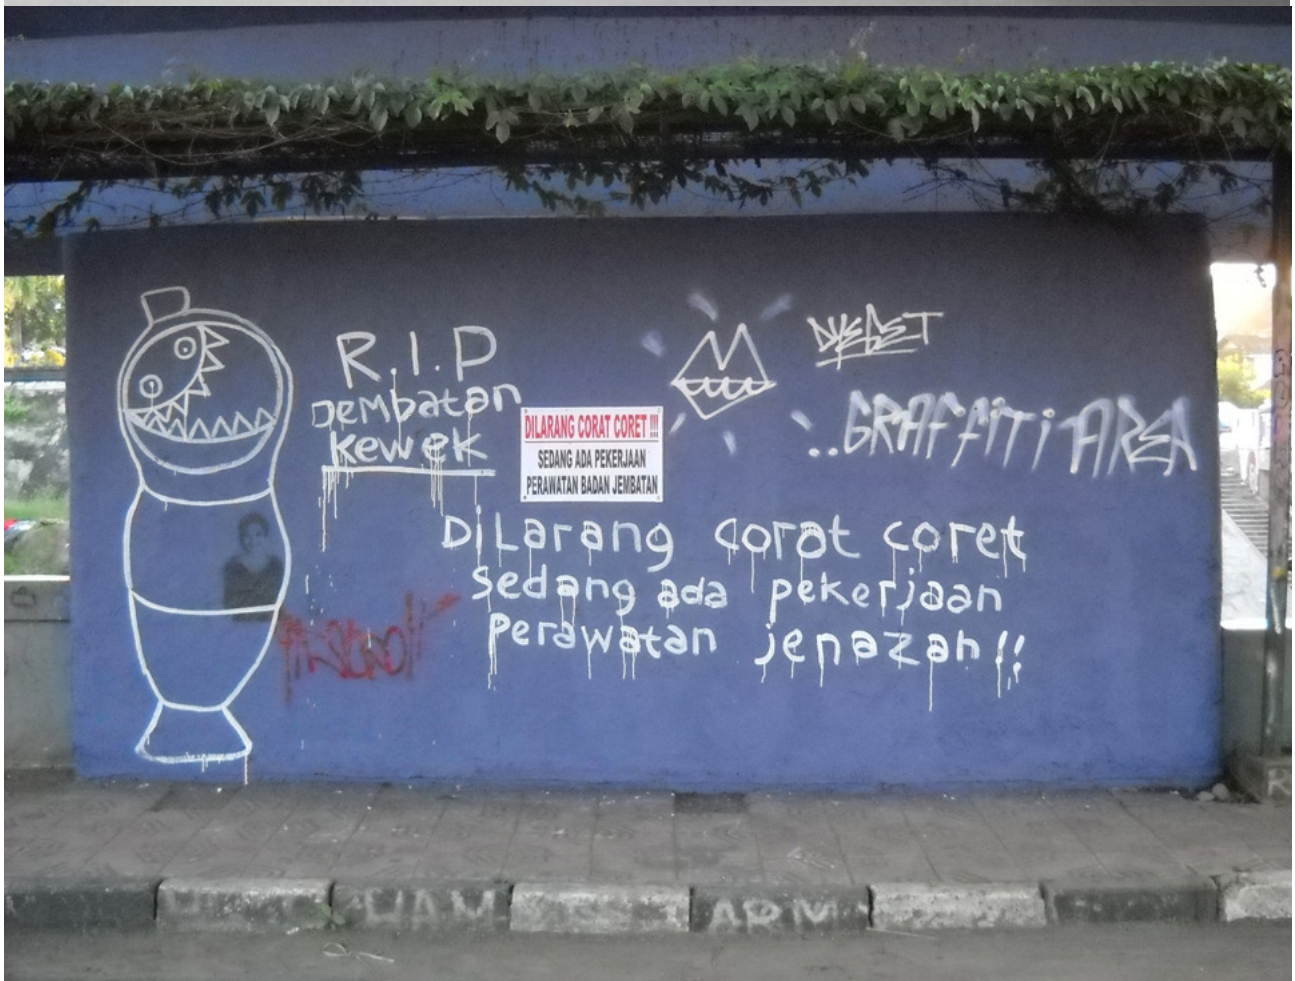 R.I.P
Jembatan
Kewek
DILARANG CORAT CORET !!!
SEDANG ADA PEKERJAAN
PERAWATAN BADAN JEMBATAN
..GRAFFITI AREA
DiLarang corat coret
Sedang ada pekerjaan
Perawatan jenazah!!